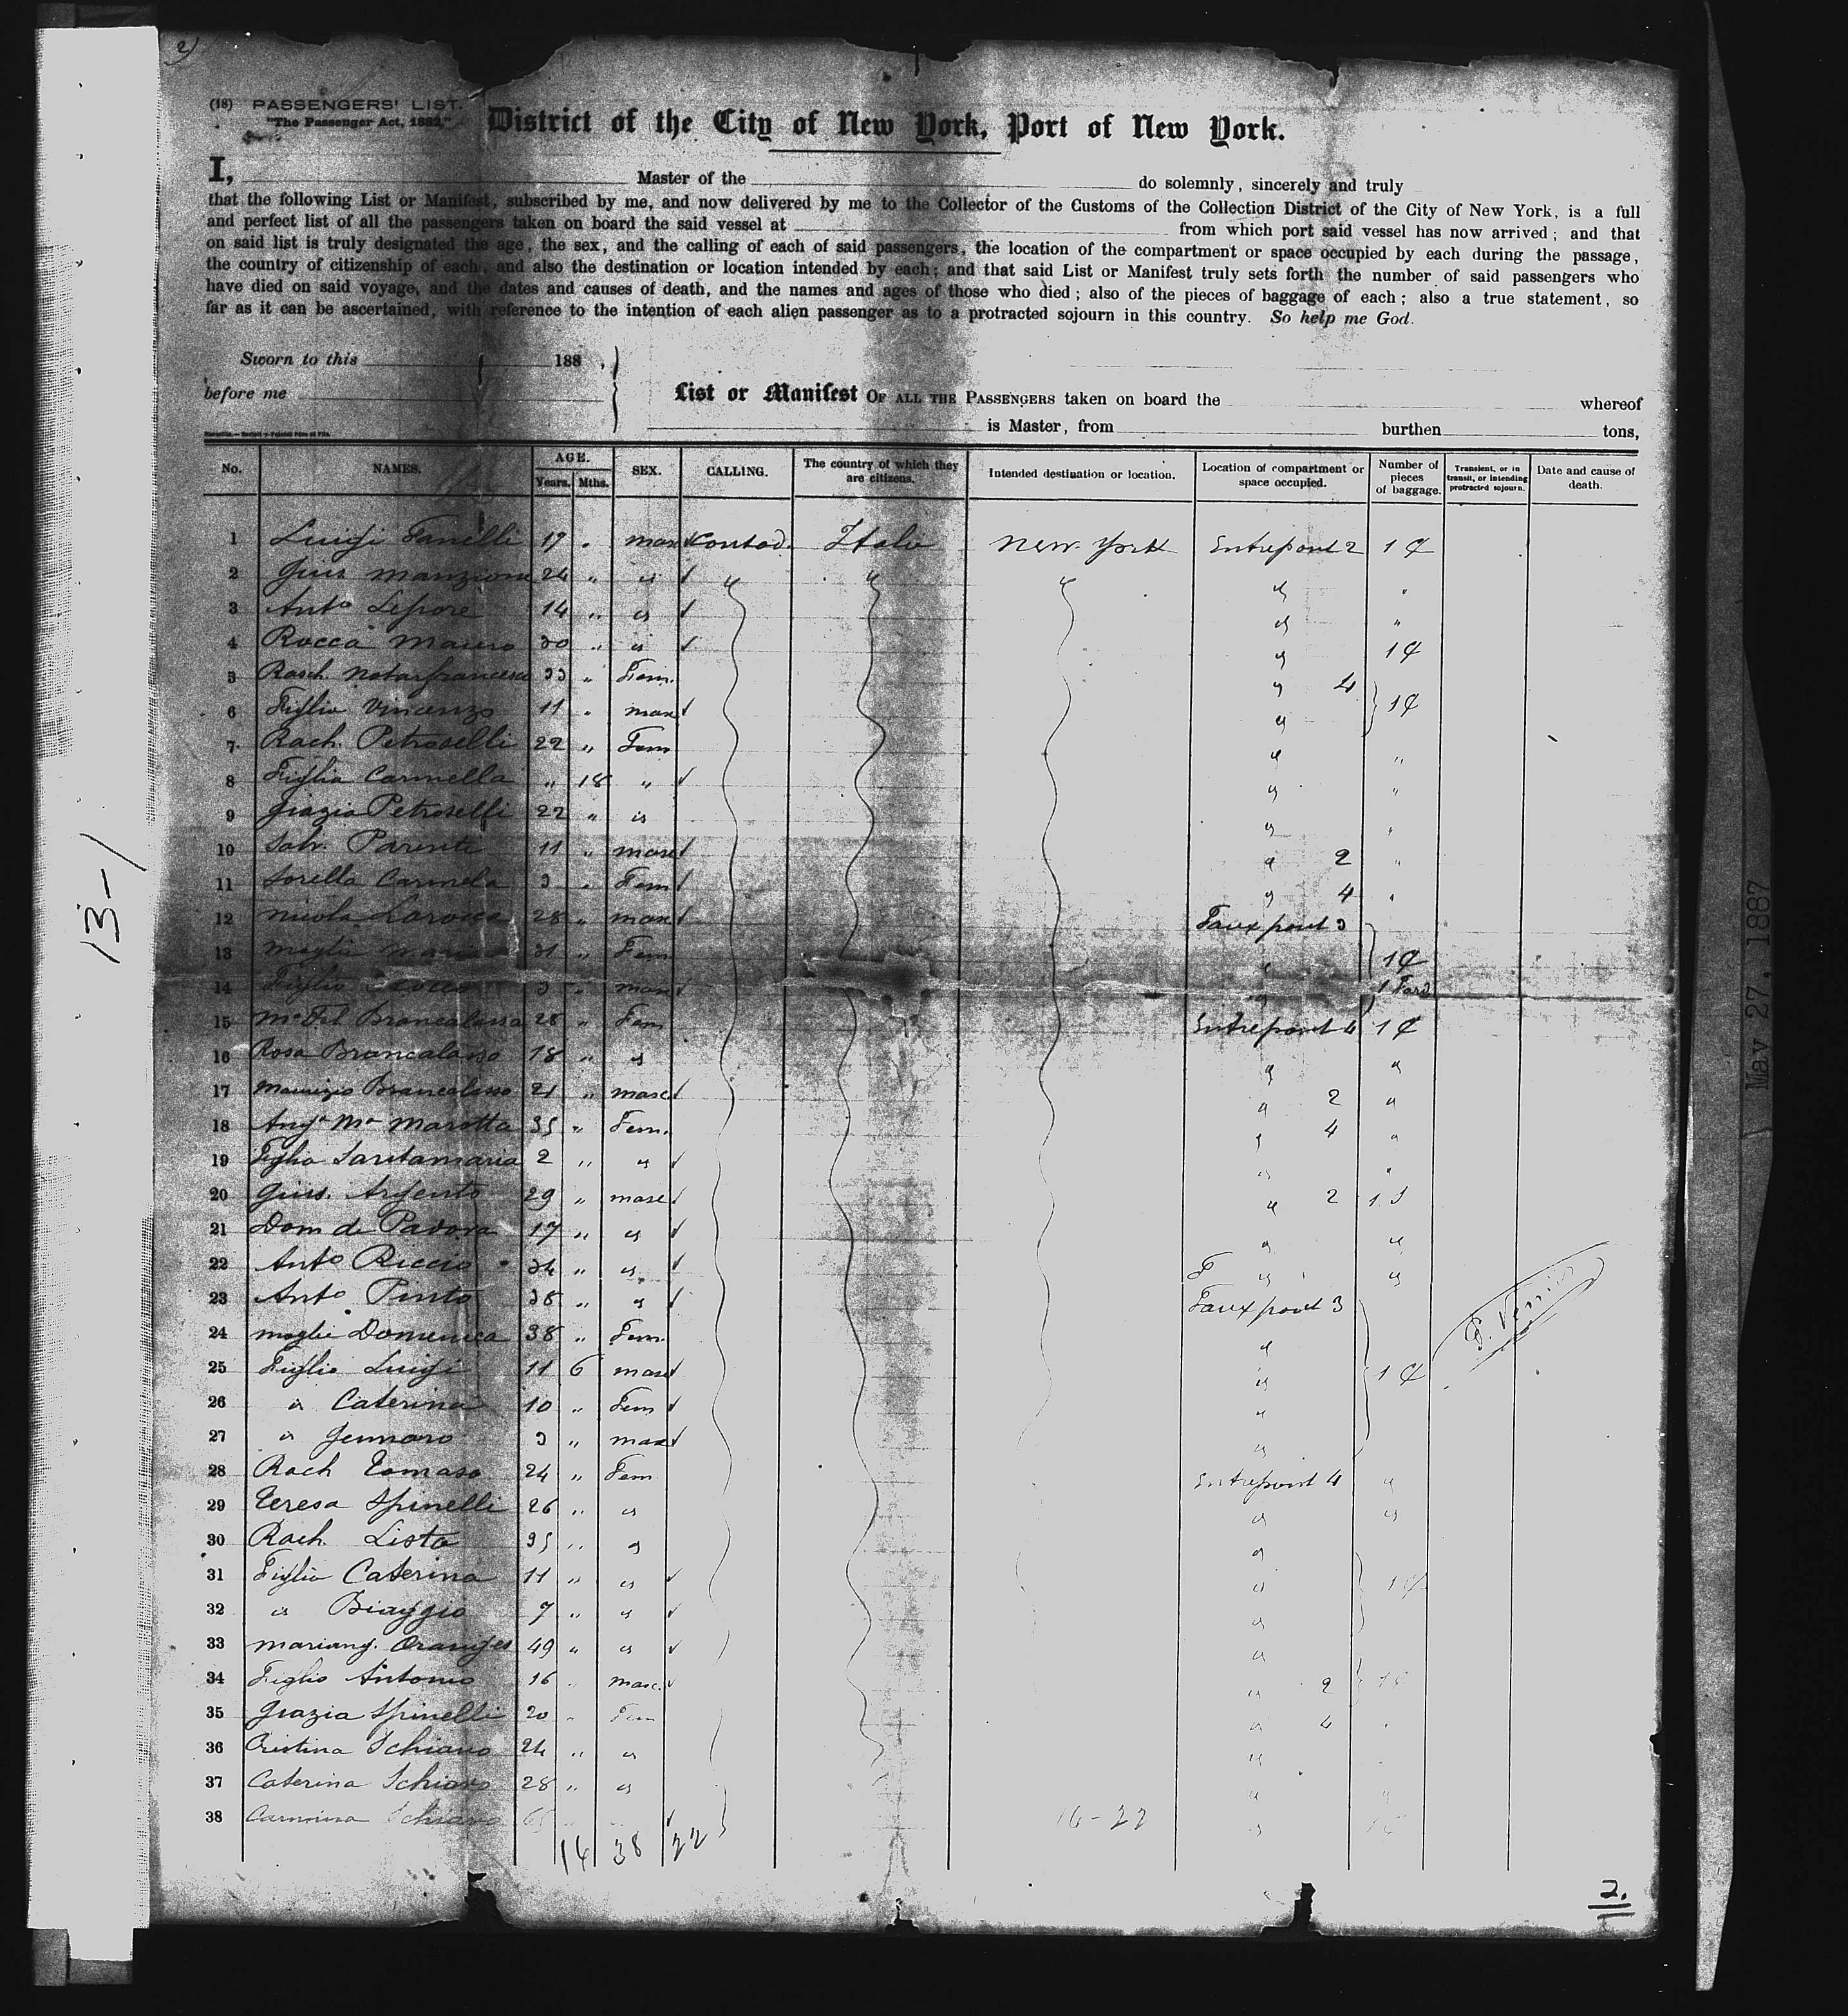 2)
(18) PASSENGERS' LIST.
"The Passenger Act, 1882."
District of the City of New York, Port of New York.
I, Master of the do solemnly, sincerely and truly
that the following List or Manifest, subscribed by me, and now delivered by me to the Collector of the Customs of the Collection District of the City of New York, is a full
and perfect list of all the passengers taken on board the said vessel at from which port said vessel has now arrived; and that
on said list is truly designated the age, the sex, and the calling of each of said passengers, the location of the compartment or space occupied by each during the passage,
the country of citizenship of each, and also the destination or location intended by each; and that said List or Manifest truly sets forth the number of said passengers who
have died on said voyage, and the dates and causes of death, and the names and ages of those who died; also of the pieces of baggage of each; also a true statement, so
far as it can be ascertained, with reference to the intention of each alien passenger as to a protracted sojourn in this country. So help me God.
Sworn to this 188 ,
before me
List or Manifest OF ALL THE PASSENGERS taken on board the whereof
is Master, from burthen tons,
No. NAMES. AGE. Years. Mths. SEX. CALLING. The country of which they are citizens. Intended destination or location. Location of compartment or space occupied. Number of pieces of baggage. Transient, or in transit, or intending protracted sojourn. Date and cause of death.
1 Luigi Fanelli 19 " masc Contad. Italie New-York Entrepont 2 1 C
2 Gius Manzione 24 " " " " " " "
3 Anto Lepore 14 " " " "
4 Rocca Mauro 30 " " " 1 C
5 Rach. Notarfrancesco 33 " Fem. " 4
6 Figlio Vincenzo 11 " masc " 1 C
7 Rach. Petroselli 22 " Fem " "
8 Figlia Carmella " 18 " " "
9 Grazia Petroselli 22 " " " "
10 Salv. Parente 11 " masc " 2 "
11 Sorella Carmela 3 " Fem " 4 "
12 Nicola Larocca 28 " masc Faux pont 3
13 Moglie Maria 31 " Fem " 1 C
14 Figlio Rocco 3 " masc " 1 Fard
15 Ma Fel Brancalasso 28 " Fem Entrepont 4 1 C
16 Rosa Brancalasso 18 " " " "
17 Maurizio Brancalasso 21 " masc " 2 "
18 Anga Ma Marotta 35 " Fem. " 4 "
19 Figlia Santamaria 2 " " " "
20 Gius. Argento 29 " masc " 2 1 S
21 Dom de Padova 17 " " " "
22 Anto Riccio 34 " " F " "
23 Anto Pinto 38 " " Faux pont 3
24 moglie Domenica 38 " Fem. "
25 Figlio Luigi 11 6 masc " 1 C
26 " Caterina 10 " Fem "
27 " Gennaro 3 " masc "
28 Rach Tomaso 24 " Fem Entrepont 4 "
29 Teresa Spinelli 26 " " " "
30 Rach. Lista 35 " " "
31 Figlia Caterina 11 " " " 1 C
32 " Biaggio 7 " " "
33 Mariang. Oranges 49 " " "
34 Figlio Antonio 16 " masc. " 2 1 C
35 Grazia Spinelli 20 " Fem " 4
36 Cristina Schiavo 24 " " "
37 Caterina Schiavo 28 " " " "
38 Carmina Schiavo 65 "
14 38 22
16-22
2.
13-1
May 27, 1887